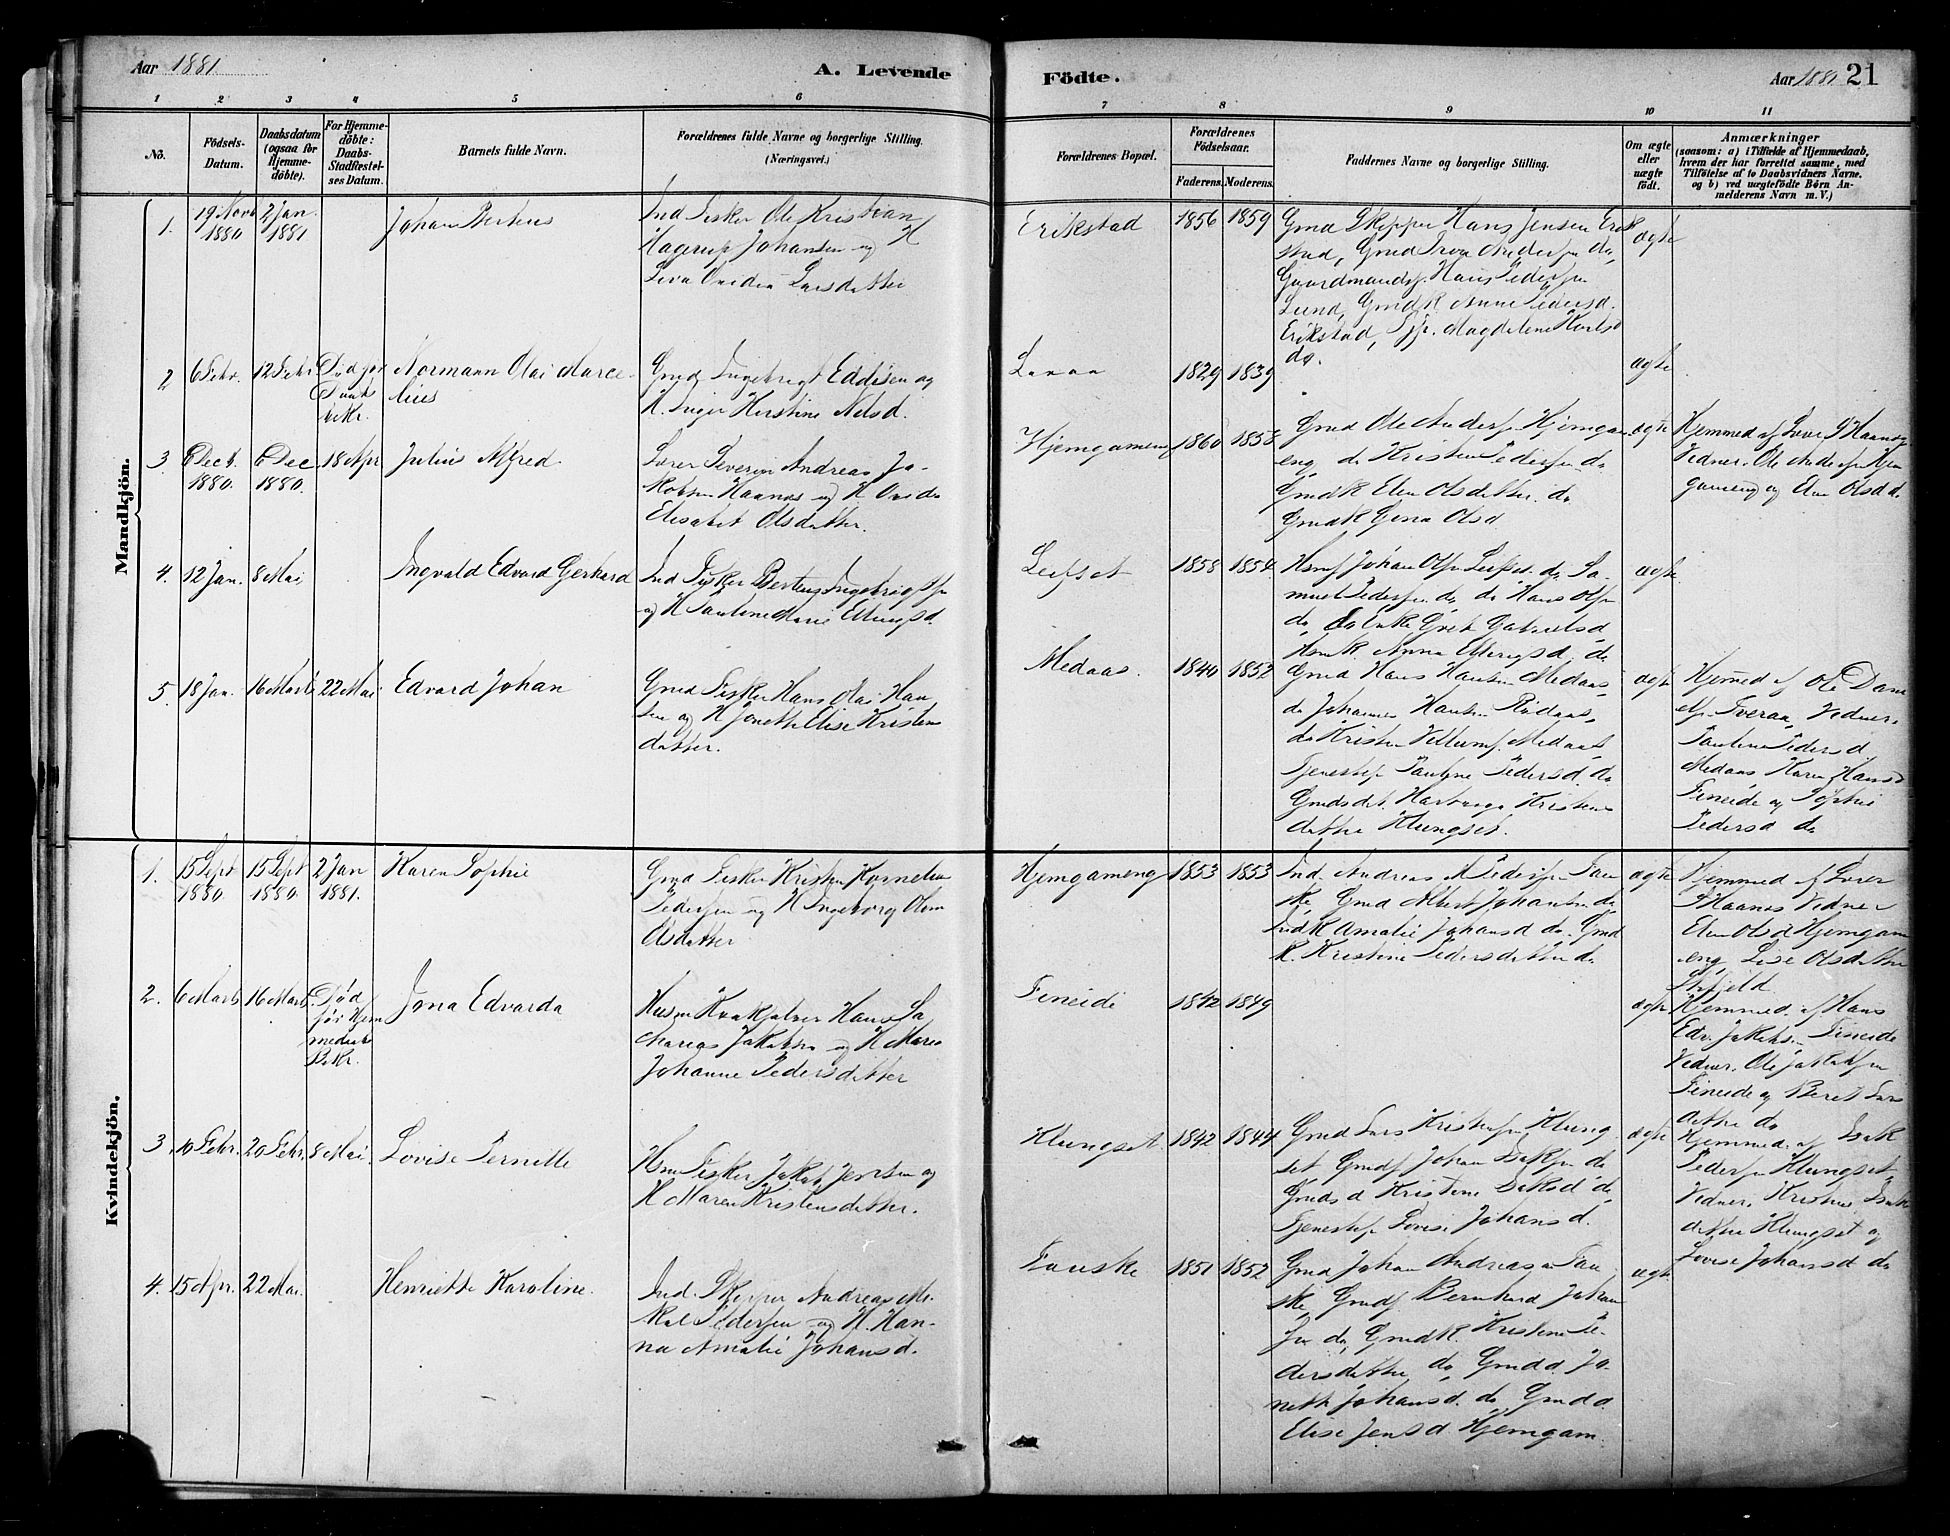 Aar 1881
A. Levende
Födte.
Aar 1881
21
1 2 3 4 5 6 7 8 9 10 11
No.
Födsels-
Datum.
Daabsdatum
(ogsaa for
Hjemme-
döbte).
For Hjemme-
döbte:
Daabs-
Stadfæstel-
ses Datum.
Barnets fulde Navn.
Forældrenes fulde Navne og borgerlige Stilling.
(Næringsvei.)
Forældrenes Bopæl.
Forældrenes
Födselsaar.
Faderens. Moderens.
Faddernes Navne og borgerlige Stilling.
Om ægte
eller
uægte
födt.
Anmærkninger
(saasom: a) i Tilfælde af Hjemmedaab,
hvem der har forrettet samme, med
Tilföielse af to Daabsvidners Navne.
og b) ved uægtefödte Börn An-
melderens Navn m.V.)
Mandkjön.
1.
19 Novb
1880
2 Jan.
1881
Johan
Ind Fisker Ole Kristian
Hagerup Johansen og H
Larsdatter
Erikstad
1856 1859
Gmd Skipper Hans Jensen Erik
stad, Gmd Andersen do,
Gaardmands Hans Pedersen
Lund, Gmdk Anne Pedersd.
Erikstad, Magdelene
do.
ægte
2
6 Febr.
12 Febr
Død før
Normann Olai Marce-
lius
Gmd Ingebrigt Eddisen og
H. Inger Kirstine Nilsd.
1829 1839
ægte
3.
6 Decb.
1880.
6 Dec
1880.
18 Apr
Julius Alfred.
Lærer Severin Andreas Ja-
kobsen Haanes og H
Elisabet Olsdatter.
Hjemgameng
1860 1858
Gmd Ole Anders. Hjemgam
eng, do Kristen Pedersen do
Gmdk Elen Olsdatter do
Gmdk Gina Olsd
ægte
Hjemmed. af Haanes
Vidner. Ole Andersen Hjem
gameng og Elen Olsd do
4.
12 Jan.
8 Mai
Ingvald Edvard Gerhard
Ind Fisker Berteus Ingebrigtsen
og H Pauline Marie Ellingsd.
Leifset
1858 1854
Hsmd Johan Olsen Leifset do Sa-
muel Pedersen do, do Hans Olsen
do, Enke Gabrielsd
Hsmk Anna Ellingsd. do
ægte
5.
18 Jan.
16 Marts
22 Mai
Edvard Johan
Gmd Fisker Hans Olai Han
sen og H Jonette Elise Kristens
datter.
Medaas.
1840 1852
Gmd Hans Hansen Medaas,
do Johannes Hansen Rødaas,
do Kristen Villums. Medaas
Tjenestep Pauline Pedersd. do
Gmdsdet. Kristens
datter Klungset.
ægte
Hjemmed af Ole Dani
els. Tveraa, Vidner.
Pauline Pedersd
Medaas Karen Hansd
Fineide og Sophie
Pedersd do
Kvindekjön.
1.
15 Sept
1880
15 Sept
1880.
2 Jan
1881.
Karen Sophie
Gmd Fisker Kristen Kornelius
Pedersen og H Ingeborg
Olsdatter
Hjemgameng
1853 1853
Ind. Andreas M Pedersen Fau
ske, Gmd Albert Johansen do
Indk Amalie Johansd do. Gmd
k. Kristine Pedersdatter do
ægte
Hjemmed af Lærer
Haanes Vidner
Elen Olsd Hjemgam
eng Lise Olsdatter
2.
6 Marts
16 Marts
Død
før Hjem
medaab
Bekr.
Jona Edvarda
Hans Za
charias Jakobsen og H Maren
Johanne Pedersdatter
Fineide
1842 1849
ægte
Hjemmed. af Hans
Edv. Jakobsen Fineide
Vidner. Ole Jakobsen
Fineide og Beret Lars
datter do
3.
10 Febr.
20 Febr.
8 Mai
Lovise Pernille
Hsm Fisker Jakob Jentsen og
H Maren Kristensdatter.
Klungset.
1842 1844
Gmd Lars Kristensen Klung
set Gmds Johan Isaks. do
Gmds d Kristine Isaksd do,
Tjenestep Lovise Johansd.
ægte
Hjemmed. af Isak
Pedersen Klungset,
Vidner, Kristine Isaks
datter Klungset og
Lovise Johansd do
4.
15 Apr.
22 Mai.
Henriette Karoline.
Ind. Skipper Andreas Mi-
kal Pedersen og H. Han-
na Amalie Johansd.
Fauske
1851 1852
Gmd Johan Andreasen Fau
ske, Gmds. Bernhard Johan
sen do, Gmdk. Kristine Pe-
dersdatter do, Gmdd. Ja-
nette Johansd. do, Gmdd.
Elise Jensd Hjemgam.
ægte